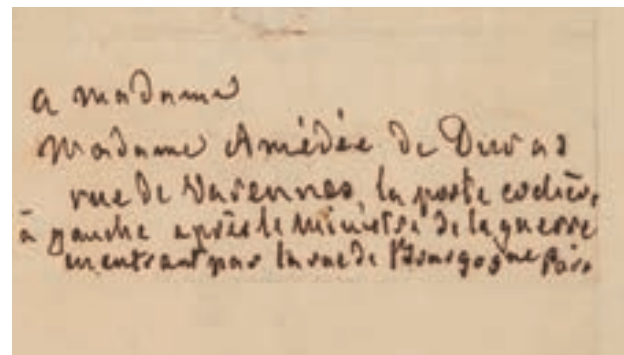 a madame
madame Amédée de Duras
rue de Varennes, la porte cochère,
à gauche après le Ministre de la guerre
en entrant par la rue de Bourgogne Paris